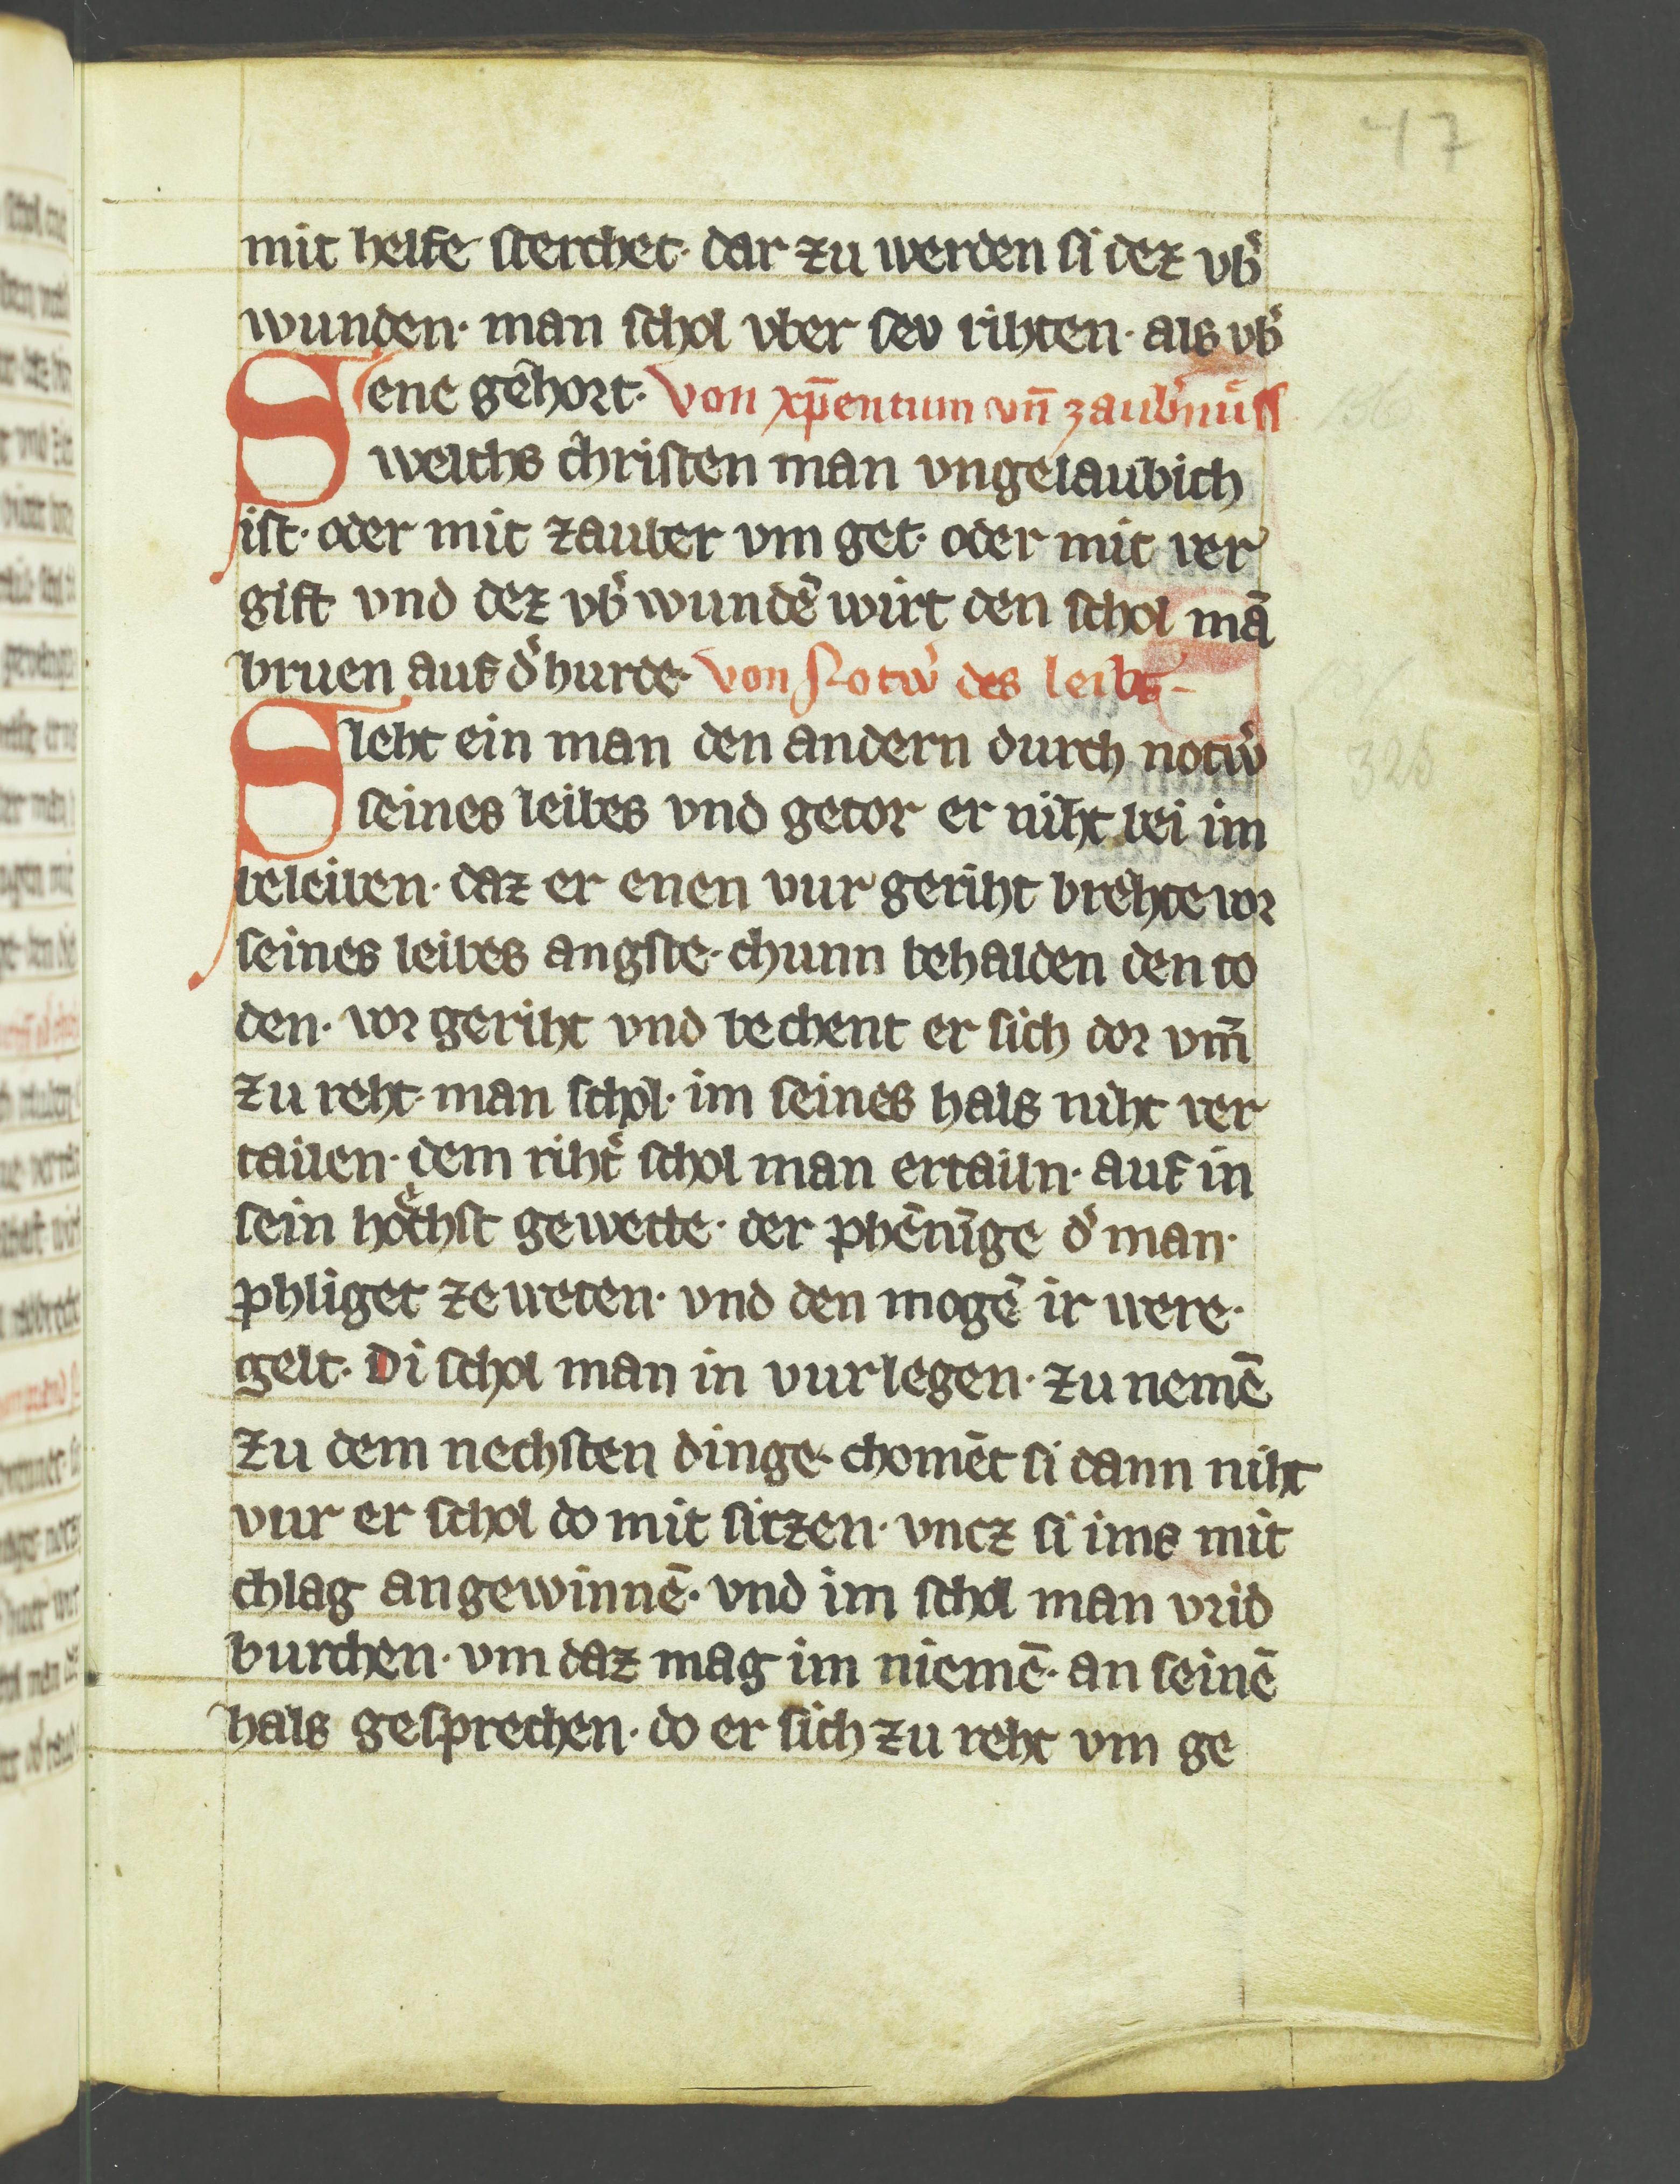 47
mit helfe sterchet· dar zu werden si dez vb̾
wunden· man schol vber sev rihten· als vb̾
ene gehort· Von xp̄entum vn̄ zaub̾nuͤss
Swelchs christen man vngelaubich
ist· oder mit zauber vm get· oder mit ver
gift vnd dez vb̾wundē wirt den schol mā
bruen auf d̾ hurde· von Notw̾ des leibs
Sleht ein man den andern durch notw̾
seines leibes vnd getor er niht bei im
beleiben· daz er enen vur geriht brehte vor
seines leibes angste· chunn behalden den to
den· vor geriht vnd bechent er sich dor vm̄
zu reht· man schol· im seines hals niht ver
tailen· dem riht̾ schol man ertailn· auf in
sein hoͤchst gewette· der phēnīge d̾ man·
phliget ze weten· vnd den mogē ir were·
gelt· Di schol man in vurlegen· zu nemē
zu dem nechsten dinge· chomēt si dann niht
vur er schol do mit sitzen· vntz si ims mit
chlag angewinnē· vnd im schol man vrid
burchen· vm daz mag im niemē· an seinē
hals gesprechen· do er sich zu reht vm ge
325